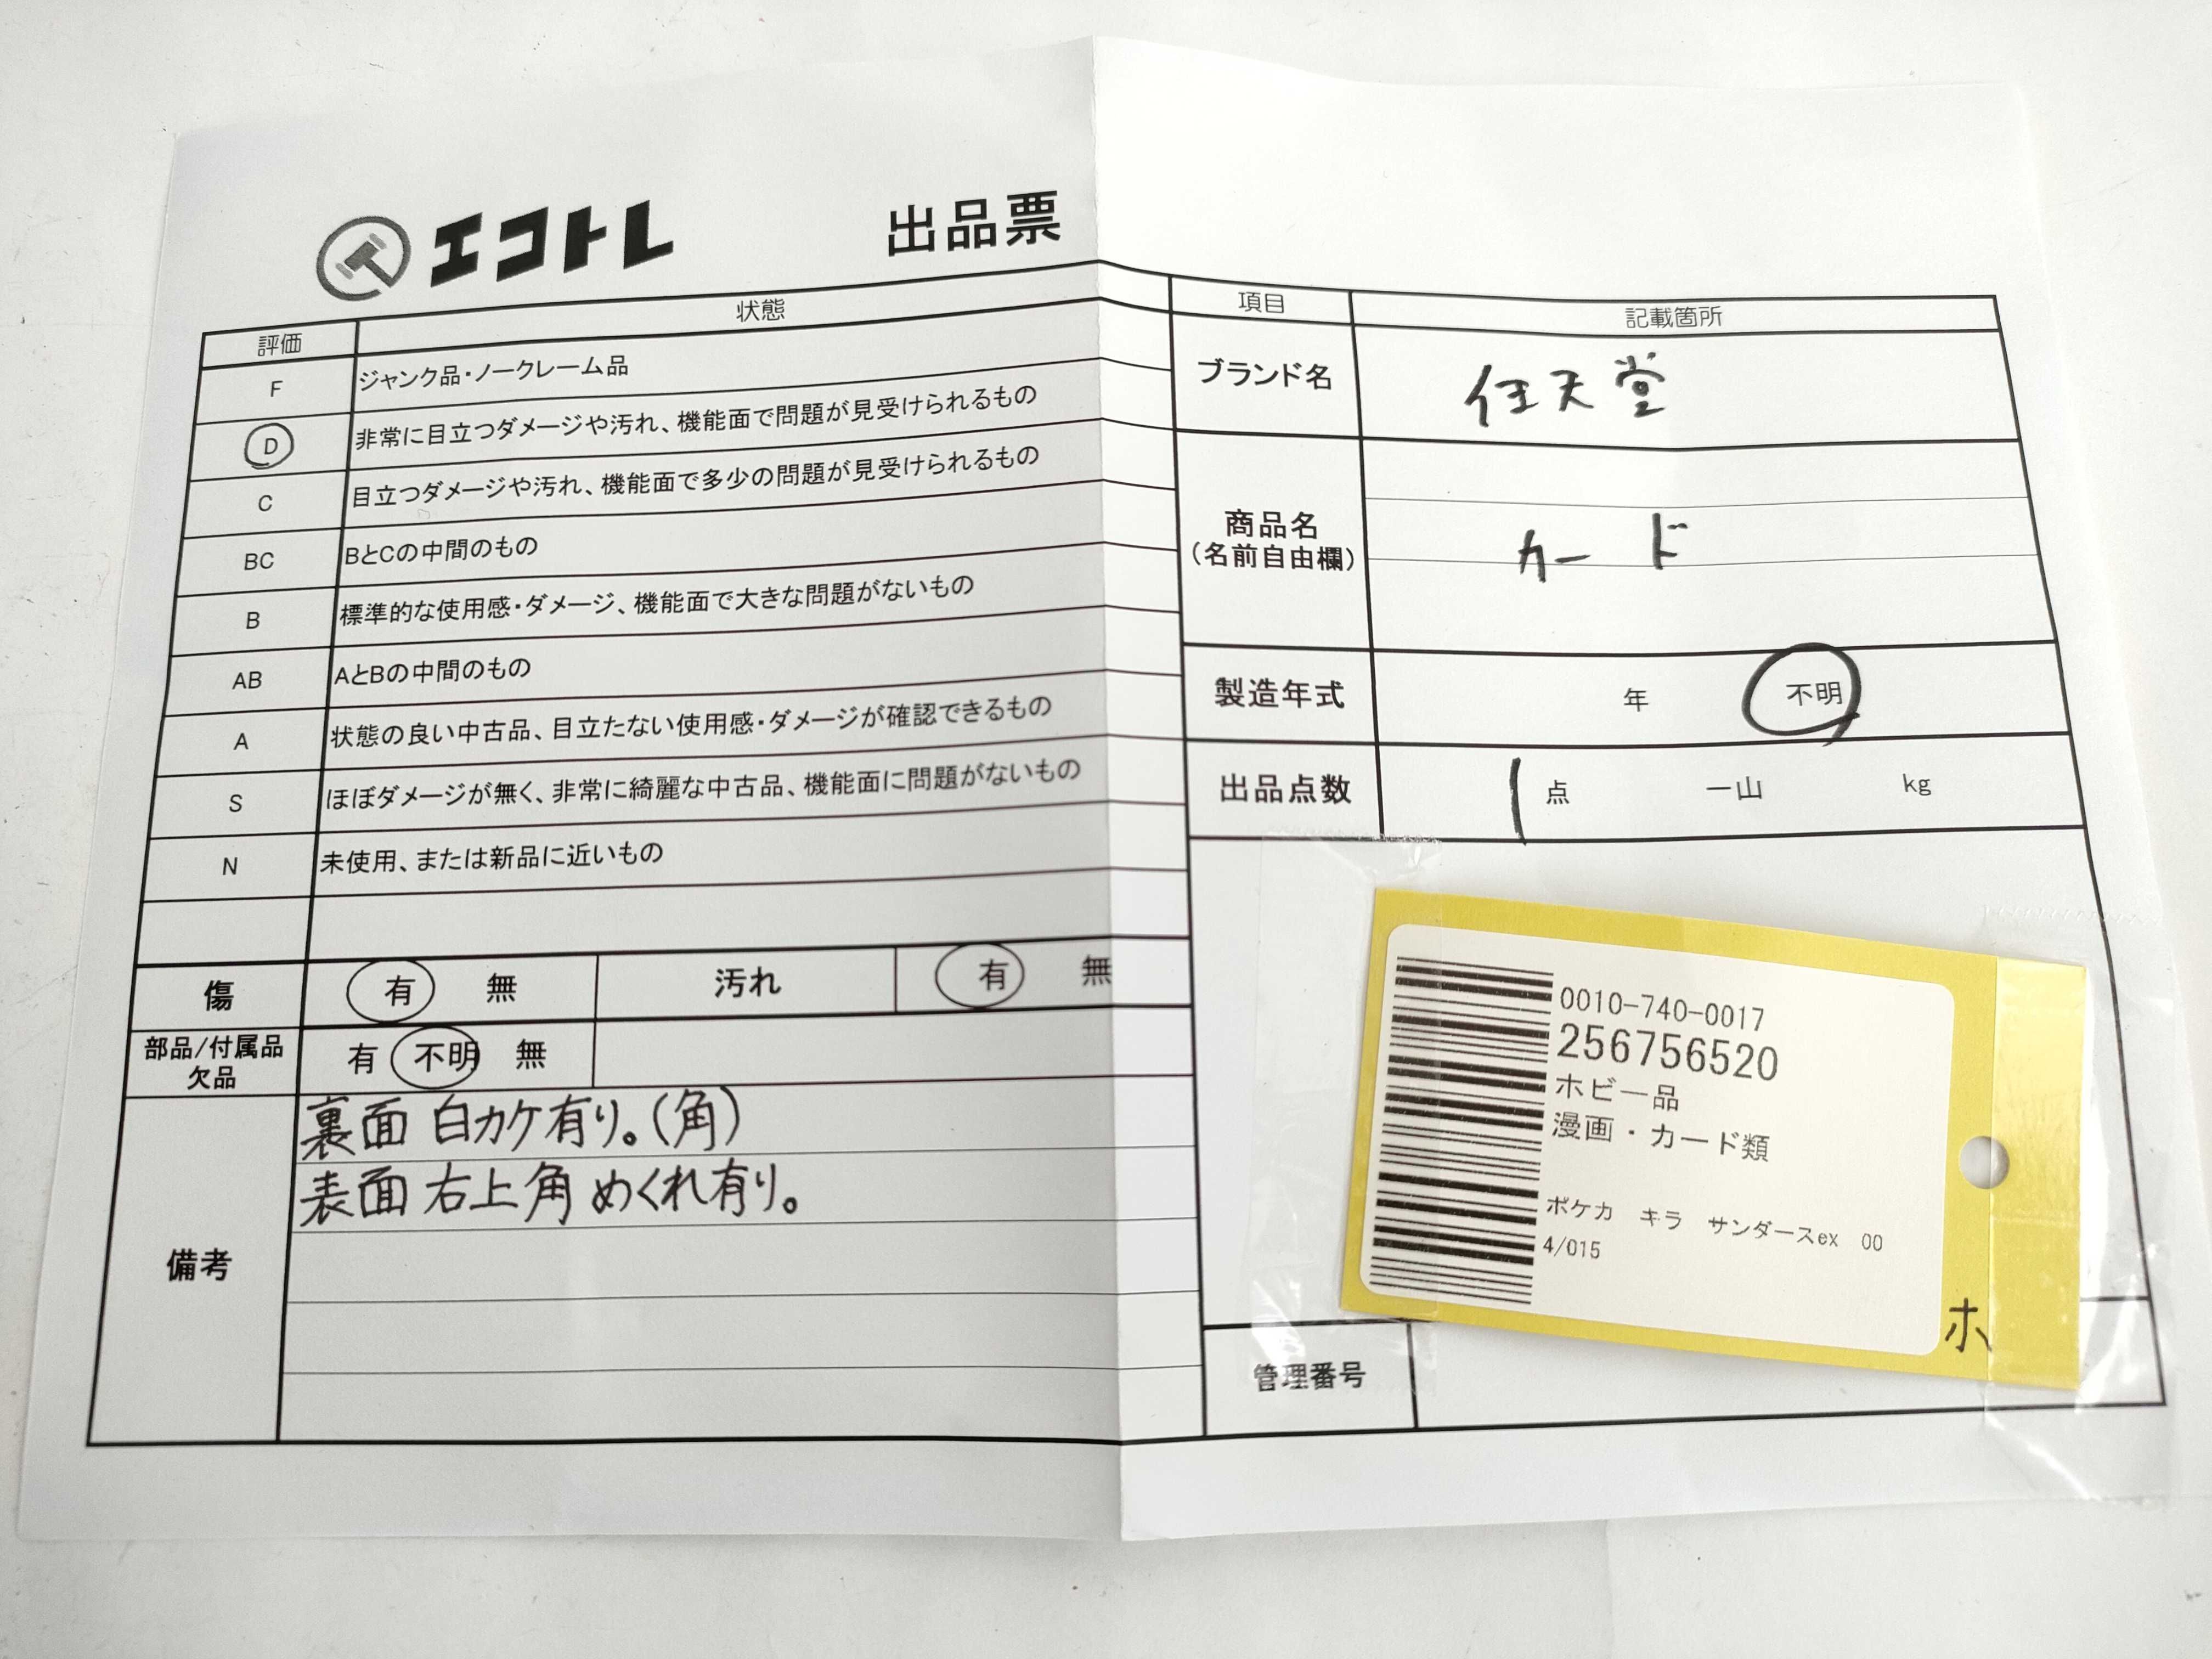 エコトレ 出品票
評価 状態
F ジャンク品・ノークレーム品
D 非常に目立つダメージや汚れ、機能面で問題が見受けられるもの
C 目立つダメージや汚れ、機能面で多少の問題が見受けられるもの
BC BとCの中間のもの
B 標準的な使用感・ダメージ、機能面で大きな問題がないもの
AB AとBの中間のもの
A 状態の良い中古品、目立たない使用感・ダメージが確認できるもの
S ほぼダメージが無く、非常に綺麗な中古品、機能面に問題がないもの
N 未使用、または新品に近いもの
傷 有 無 汚れ 有 無
部品/付属品
欠品
有 不明 無
備考
裏面 白カケ有り。(角)
表面 右上角 めくれ有り。
項目 記載箇所
ブランド名 任天堂
商品名
(名前自由欄)
カード
製造年式 年 不明
出品点数 1 点 一山 kg
0010-740-0017
256756520
ホビー品
漫画・カード類
ポケカ キラ サンダースex 00
4/015
ホ
管理番号